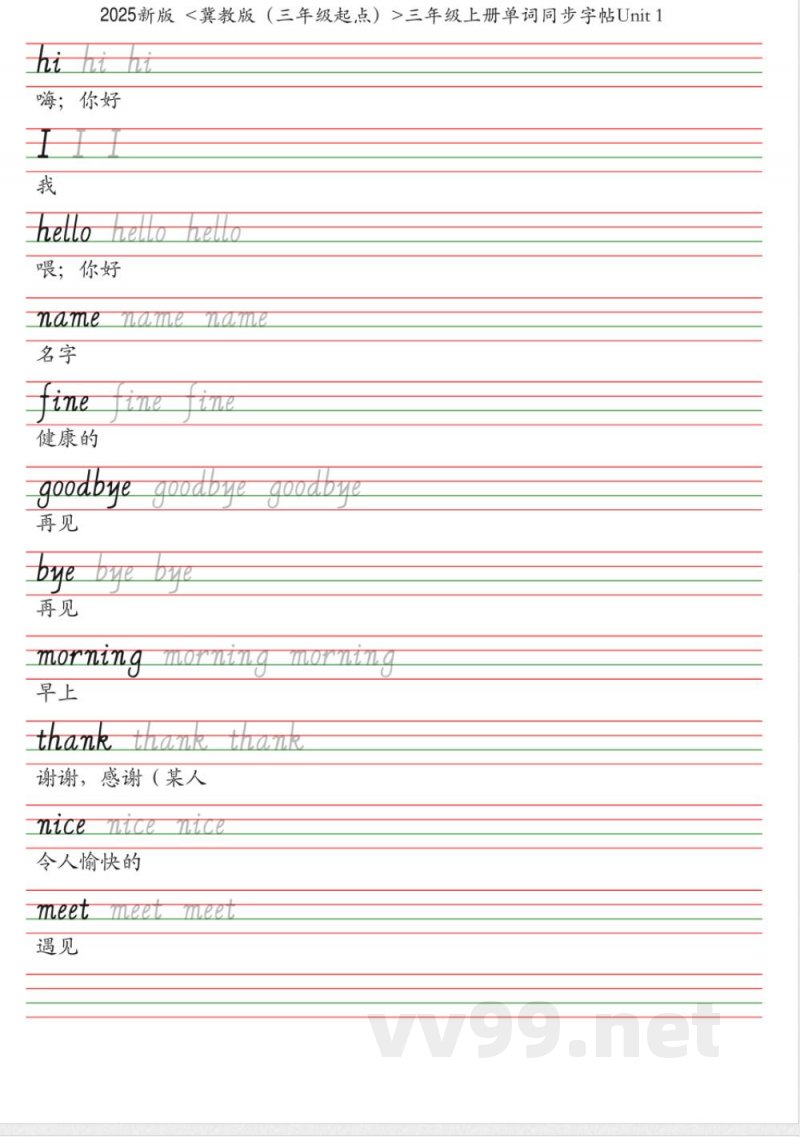 2025新版 <冀教版（三年级起点）>三年级上册单词同步字帖Unit 1
hi hi hi
嗨；你好
I I I
我
hello hello hello
喂；你好
name name name
名字
fine fine fine
健康的
goodbye goodbye goodbye
再见
bye bye bye
再见
morning morning morning
早上
thank thank thank
谢谢，感谢（某人
nice nice nice
令人愉快的
meet meet meet
遇见
vv99.net